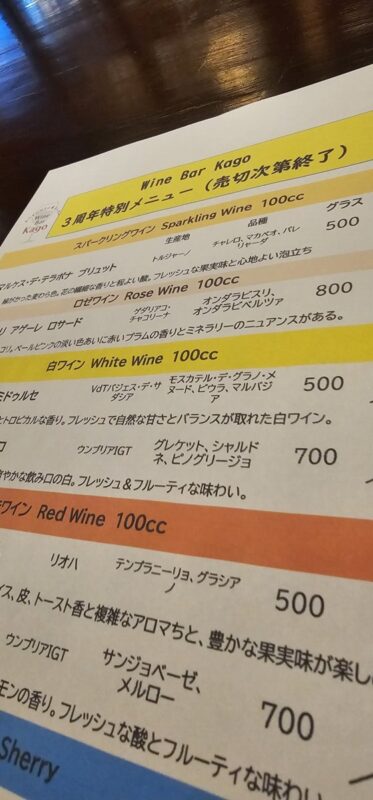 Wine Bar Kago
3周年特別メニュー（売切次第終了）
Wine
Bar
Kago
スパークリングワイン Sparkling Wine 100cc
生産地 品種 グラス
マルケス・デ・テラボナ ブリュット トルジャーノ チャレロ、マカベオ、パレリャーダ 500
緑がかった麦わら色。花の繊細な香りと程よい酸。フレッシュな果実味と心地よい泡立ち
ロゼワイン Rose Wine 100cc
アゲーレ ロサード ゲダリアコ・チャコリーナ オンダラビスリ、オンダラビベルツァ 800
ペールピンクの淡い色あいに赤いプラムの香りとミネラリーのニュアンスがある。
白ワイン White Wine 100cc
ミドゥルセ VdTバジェス・デ・サダシア モスカテル・デ・グラノ・メヌード、ビウラ、マルバジア 500
トロピカルな香り。フレッシュで自然な甘さとバランスが取れた白ワイン。
ウンブリアIGT グレケット、シャルドネ、ピノグリージョ 700
やかな飲み口の白。フレッシュ＆フルーティな味わい。
ワイン Red Wine 100cc
リオハ テンプラニーリョ、グラシアノ 500
イス、皮、トースト香と複雑なアロマちと、豊かな果実味が楽し
ウンブリアIGT サンジョベーゼ、メルロー 700
モンの香り。フレッシュな酸とフルーティな味わい
Sherry